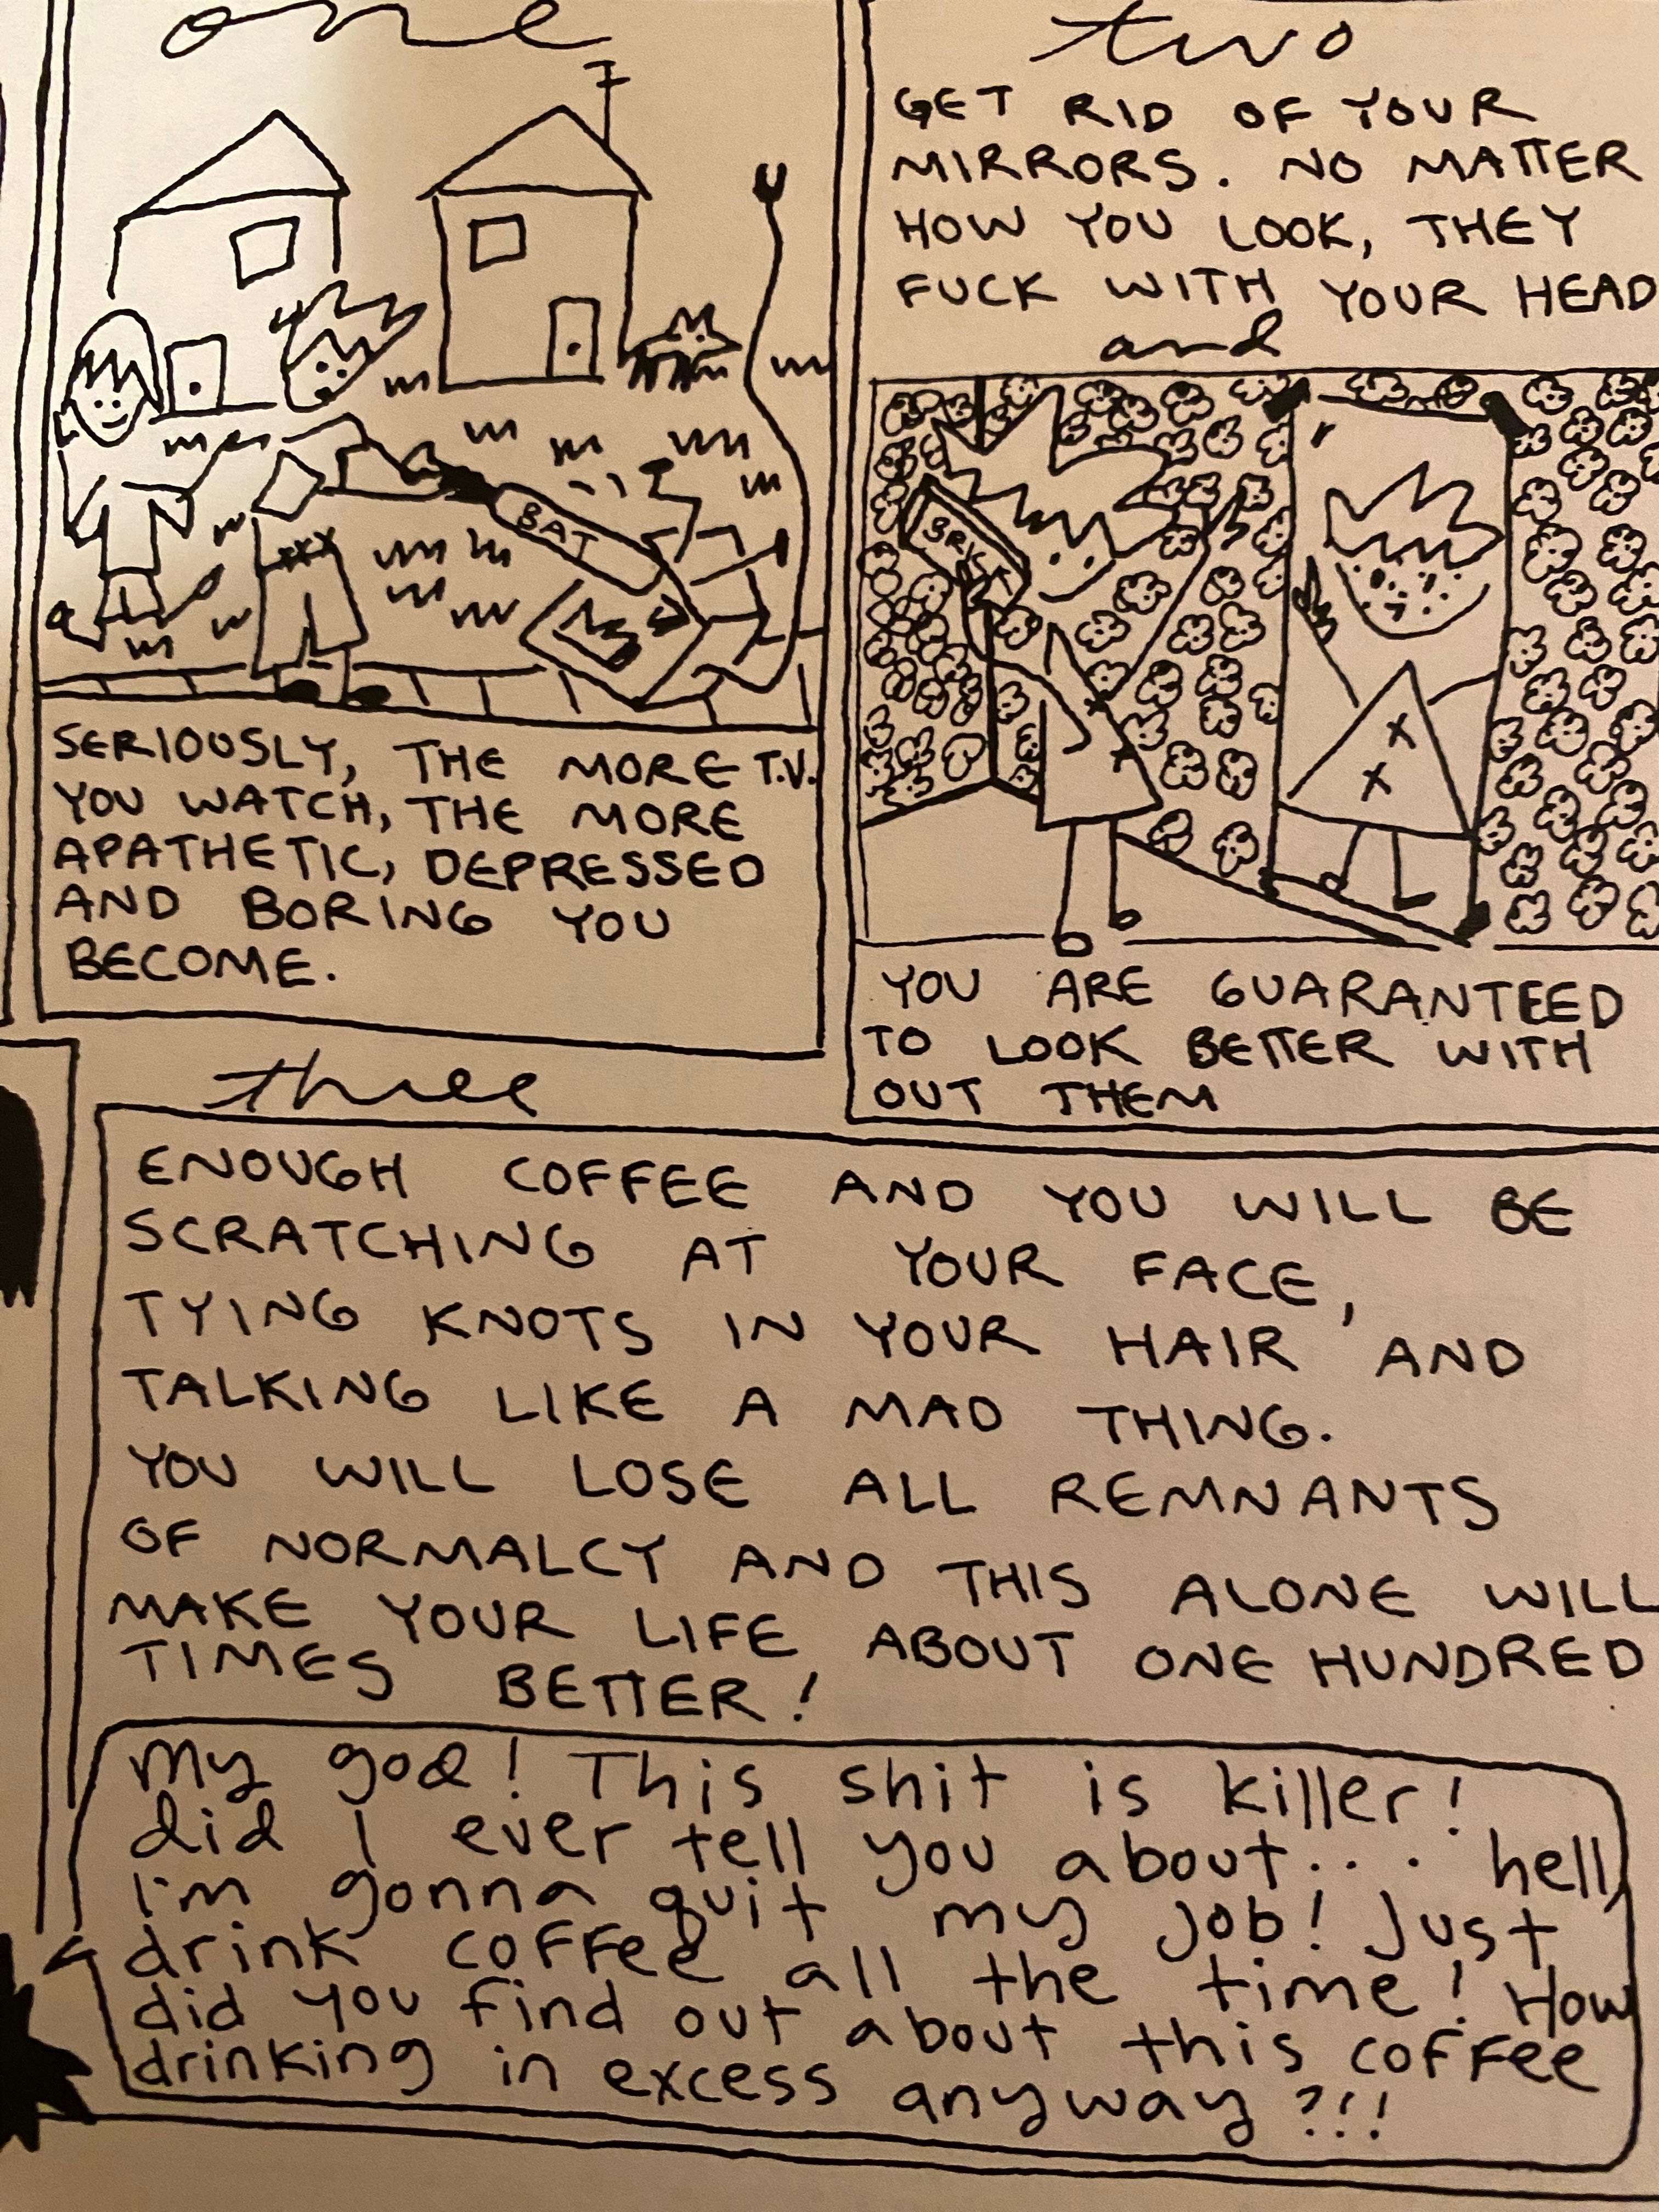 one
BAT
SERIOUSLY, THE MORE T.V.
YOU WATCH, THE MORE
APATHETIC, DEPRESSED
AND BORING YOU
BECOME.
two
GET RID OF YOUR
MIRRORS. NO MATTER
HOW YOU LOOK, THEY
FUCK WITH YOUR HEAD
and
YOU ARE GUARANTEED
TO LOOK BETTER WITH
OUT THEM
three
ENOUGH COFFEE AND YOU WILL BE
SCRATCHING AT YOUR FACE,
TYING KNOTS IN YOUR HAIR AND
TALKING LIKE A MAD THING.
YOU WILL LOSE ALL REMNANTS
OF NORMALCY AND THIS ALONE WILL
MAKE YOUR LIFE ABOUT ONE HUNDRED
TIMES BETTER!
My god! This shit is killer!
did I ever tell you about... hell,
I'm gonna quit my job! Just
drink coffee all the time! How
did you find out about this coffee
drinking in excess anyway?!!